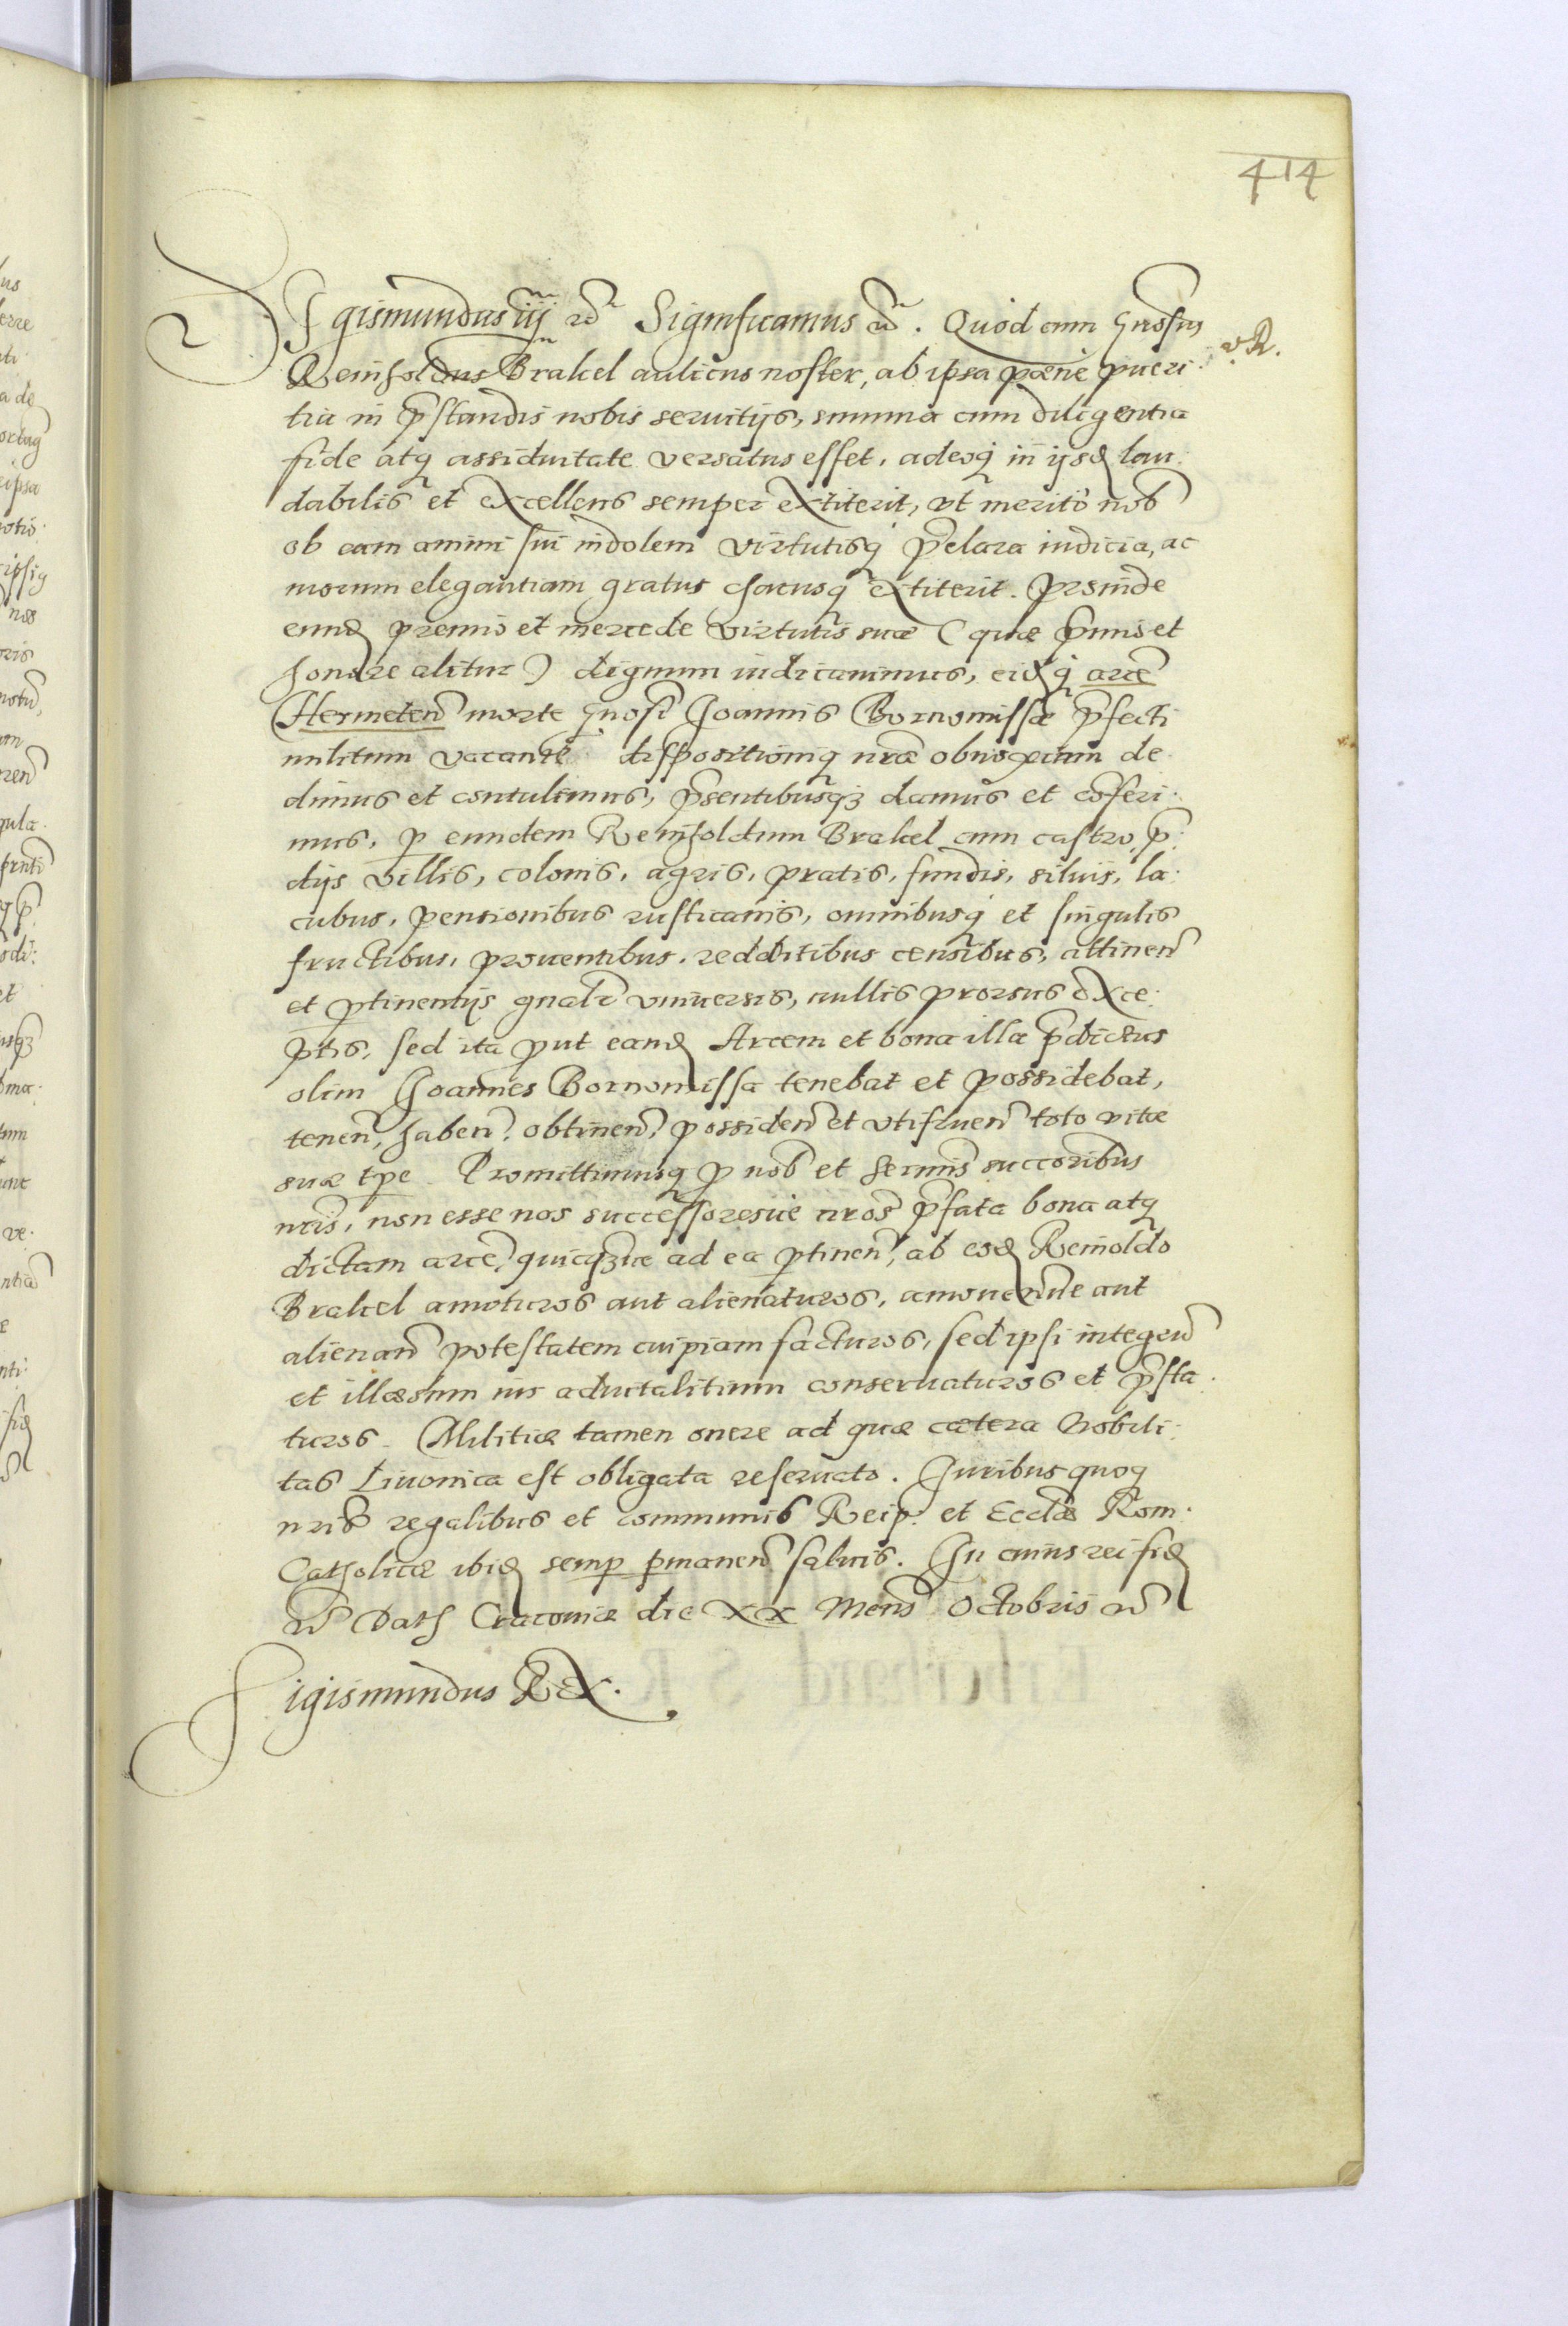 414
Sigismundus iij etc Significamus etc. Quod cum Gnosus
v. R.
Reinholdus Brakel aulicus noster, ab ipsa poene pueri:
tia in pstandis nobis seruitijs, summa cum diligentia
fide atq assiduitate versatus esset, adeoq in ijsd lau:
dabilis et excellens semper extiterit, vt merito nob
ob eam animi sui indolem virtutisq pclara indicia, ac
morum elegantiam gratus charusq extiterit. Proinde
eund premio et mercede virtutis suae (quae pmio et
honore alitur) dignum iudicauimus, eidq arcem
Hermeten morte Gnosi Joannis Bornomissae pfecti
militum vacante dispositioniq nrae obnoxiam de:
dimus et contulimus, psentibusqz damus et coferi:
mus, p eundem Reinholdum Brakel cum castro, p:
dijs villis, colonis, agris, pratis, fundis, siluis, la:
cubus, pensionibus rusticanis, omnibusq et singulis
fructibus, prouentibus, redditibus censibus, attinen
et ptinentijs gnali vniuersis, nullis prorsus exce:
ptis, sed ita put eand Arcem et bona illa pdictus
olim Joannes Bornomissa tenebat et possidebat,
tenen, haben, obtinen, possiden et vtifruen toto vitae
suae tpe. Promittimusq p nob et sermis succoribus
nris, non esse nos successoresue nros pfata bona atq
dictam arce, quicqzue ad ea ptinen, ab eod Reinoldo
Brakel amoturos aut alienaturos, amouen̄ue aut
alienan potestatem cuipiam facturos, sed ipsi integru
et illaesum ius aduitalitium conseruaturos et psta:
turos. Militiae tamen onere ad quae caetera Nobili:
tas Liuonica est obligata reseruato. Juribus quoq
nris regalibus et communis Reip. et Eccliae Rom.
Catholicae ibid semp pmanen saluis. In cuius rei fid
etc Dath Cracouiae die XX Mens Octobris etc
Sigismundus Rex.